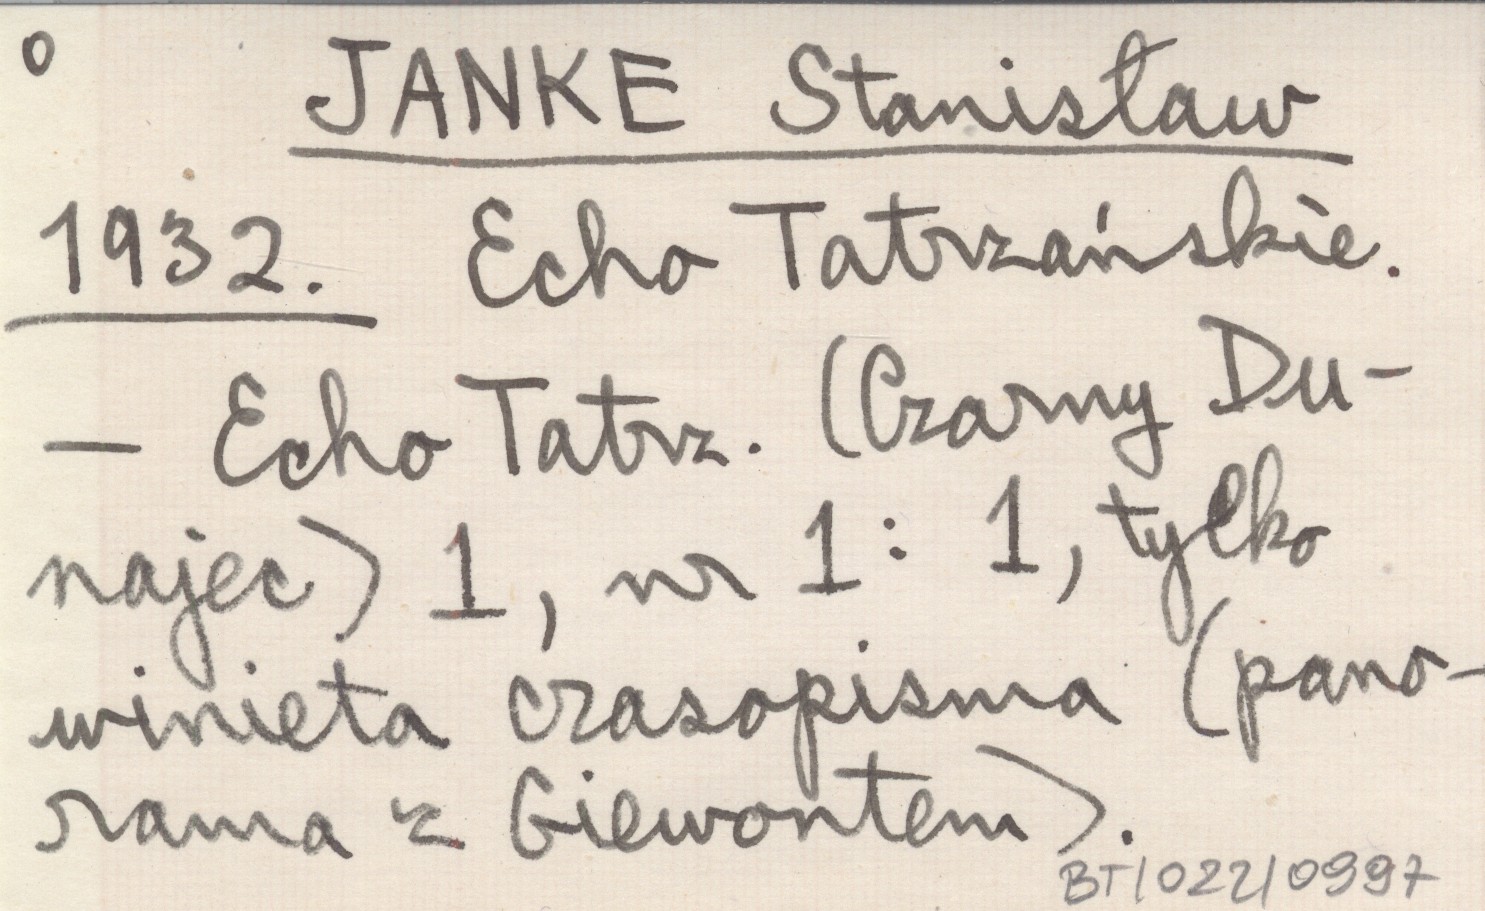 o JANKE Stanisław
1932. Echo Tatrzańskie.
— Echo Tatrz. (Czarny Du-
najec) 1, nr 1: 1, tylko
winieta czasopisma (pano-
rama z Giewontem).
BT/022/0997